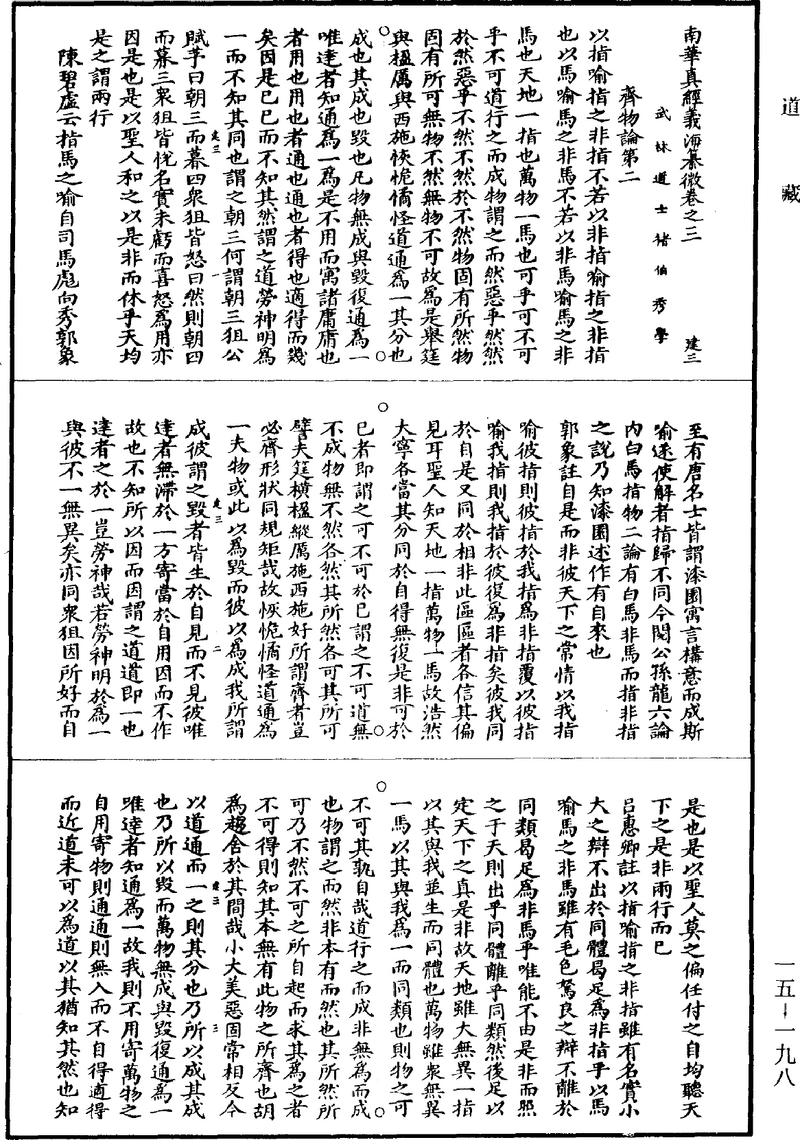 道藏
南華真經義海纂微卷之三 建三
武林道士褚伯秀學
齊物論第二
以指喻指之非指不若以非指喻指之非指
也以馬喻馬之非馬不若以非馬喻馬之非
馬也天地一指也萬物一馬也可乎可不可
乎不可道行之而成物謂之而然惡乎然然
於然惡乎不然不然於不然物固有所然物
固有所可無物不然無物不可故為是舉莛
與楹厲與西施恢恑憰怪道通為一其分也
成也其成也毀也凡物無成與毀復通為一
唯達者知通為一為是不用而寓諸庸庸也
者用也用也者通也通也者得也適得而幾
矣因是已已而不知其然謂之道勞神明為
一而不知其同也謂之朝三何謂朝三狙公
賦芧曰朝三而暮四衆狙皆怒曰然則朝四
而暮三衆狙皆悅名實未虧而喜怒為用亦
因是也是以聖人和之以是非而休乎天均
是之謂兩行
陳碧虛云指馬之喻自司馬彪向秀郭象
至有唐名士皆謂漆園寓言構意而成斯
喻遂使解者指歸不同今閱公孫龍六論
內白馬指物二論有白馬非馬而指非指
之說乃知漆園述作有自來也
郭象註自是而非彼天下之常情以我指
喻彼指則彼指於我指為非指覆以彼指
喻我指則我指於彼復為非指矣彼我同
於自是又同於相非此區區者各信其偏
見耳聖人知天地一指萬物一馬故浩然
大寧各當其分同於自得無復是非可於
已者即謂之可不可於已謂之不可道無
不成物無不然各然其所然各可其所可
譬夫莛橫楹縱厲施西施好所謂齊者豈
必齊形狀同規矩哉故恢恑憰怪道通為
一夫物或此以為毀而彼以為成我所謂
成彼謂之毀者皆生於自見而不見彼唯
達者無滯於一方寄當於自用因而不作
故也不知所以因而因謂之道道即一也
達者之於一豈勞神哉若勞神明於為一
與彼不一無異矣亦同衆狙因所好而自
是也是以聖人莫之偏任付之自均聽天
下之是非兩行而已
呂惠卿註以指喻指之非指雖有名實小
大之辯不出於同體曷足為非指乎以馬
喻馬之非馬雖有毛色駑良之辯不離於
同類曷足為非馬乎唯能不由是非而照
之于天則出乎同體離乎同類然後足以
定天下之真是非故天地雖大無異一指
以其與我並生而同體也萬物雖衆無異
一馬以其與我為一而同類也則物之可
不可其孰自哉道行之而成非無為而成
也物謂之而然非本有而然也其所然所
可乃不然不可之所自起而求其為之者
不可得則知其本無有此物之所齊也胡
為趨舍於其間哉小大美惡固常相反今
以道通而一之則其分也乃所以成其成
也乃所以毀而萬物無成與毀復通為一
唯達者知通為一故我則不用寄萬物之
自用寄物則通通則無入而不自得適得
而近道未可以為道以其猶知其然也知
建三 一
建三 二
建三 三
一五-一九八